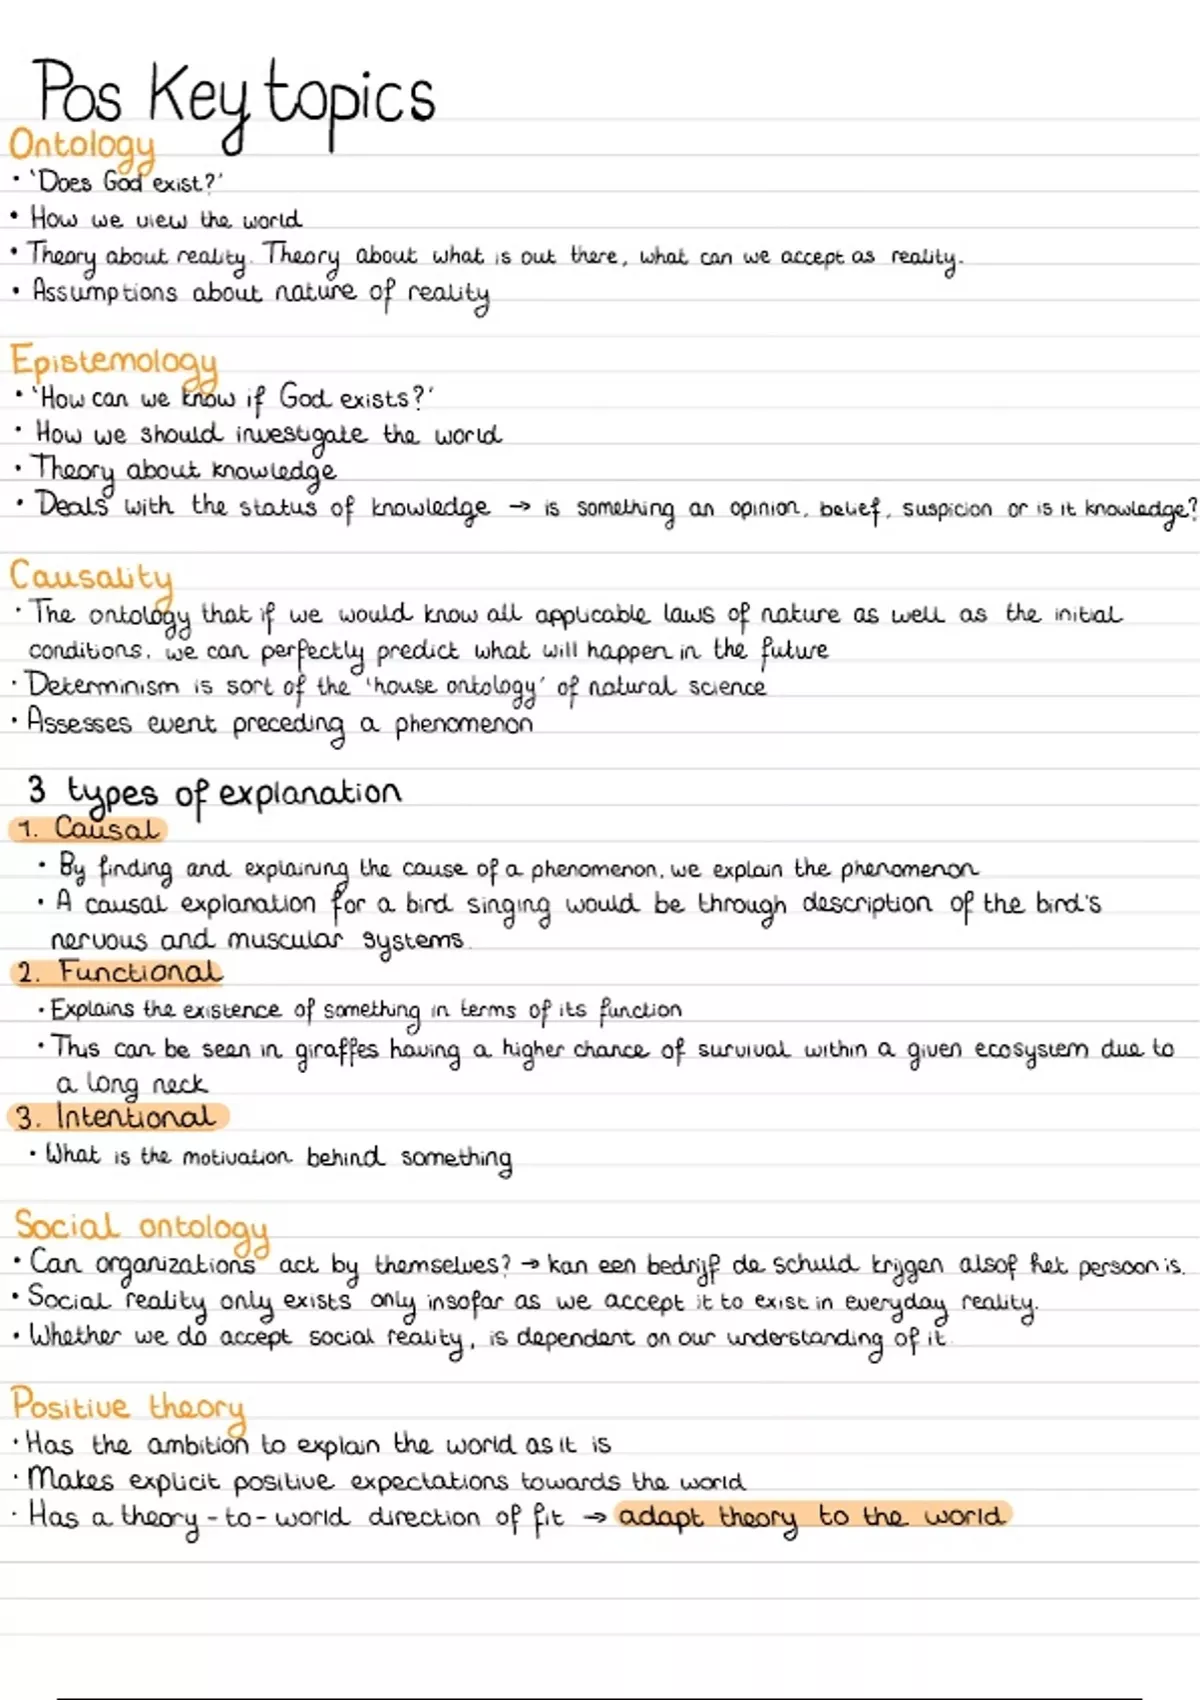 Pos Key topics
Ontology
• 'Does God exist?'
• How we view the world
• Theory about reality. Theory about what is out there, what can we accept as reality.
• Assumptions about nature of reality
Epistemology
• 'How can we know if God exists?'
• How we should investigate the world
• Theory about knowledge
• Deals with the status of knowledge → is something an opinion, belief, suspicion or is it knowledge?
Causality
• The ontology that if we would know all applicable laws of nature as well as the initial
conditions, we can perfectly predict what will happen in the future
• Determinism is sort of the 'house ontology' of natural science
• Assesses event preceding a phenomenon
3 types of explanation
1. Causal
• By finding and explaining the cause of a phenomenon, we explain the phenomenon
• A causal explanation for a bird singing would be through description of the bird's
nervous and muscular systems.
2. Functional
• Explains the existence of something in terms of its function
• This can be seen in giraffes having a higher chance of survival within a given ecosystem due to
a long neck
3. Intentional
• What is the motivation behind something
Social ontology
• Can organizations act by themselves? → kan een bedrijf de schuld krijgen alsof het persoon is.
• Social reality only exists only insofar as we accept it to exist in everyday reality.
• Whether we do accept social reality, is dependent on our understanding of it.
Positive theory
• Has the ambition to explain the world as it is
• Makes explicit positive expectations towards the world
• Has a theory-to-world direction of fit → adapt theory to the world